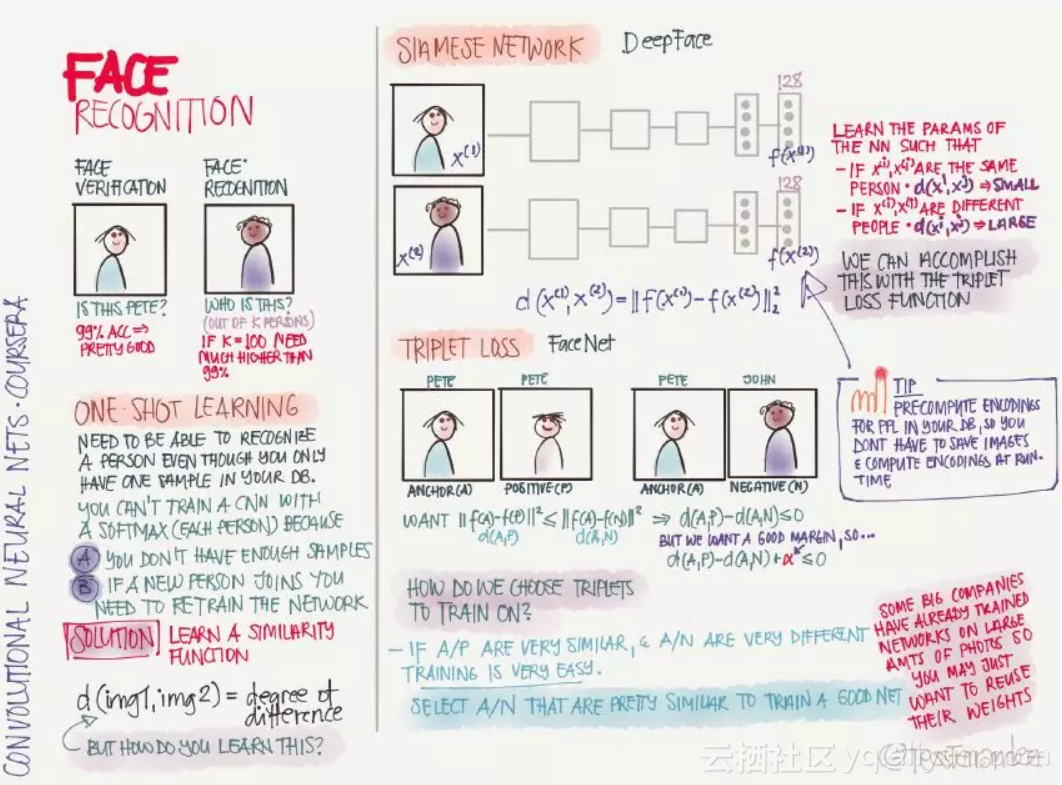 CONVOLUTIONAL NEURAL NETS · COURSERA
FACE
RECOGNITION
FACE
VERIFICATION
FACE
RECOGNITION
IS THIS PETE?
99% ACC ⇒
PRETTY GOOD
WHO IS THIS?
(OUT OF K PERSONS)
IF K=100 NEED
MUCH HIGHER THAN
99%
ONE-SHOT LEARNING
NEED TO BE ABLE TO RECOGNIZE
A PERSON EVEN THOUGH YOU ONLY
HAVE ONE SAMPLE IN YOUR DB.
YOU CAN'T TRAIN A CNN WITH
A SOFTMAX (EACH PERSON) BECAUSE
A YOU DON'T HAVE ENOUGH SAMPLES
B IF A NEW PERSON JOINS YOU
NEED TO RETRAIN THE NETWORK
SOLUTION LEARN A SIMILARITY
FUNCTION
d(img1, img2) = degree of
difference
BUT HOW DO YOU LEARN THIS?
SIAMESE NETWORK DeepFace
x⁽¹⁾
128
f(x⁽¹⁾)
x⁽²⁾
128
f(x⁽²⁾)
d(x⁽¹⁾, x⁽²⁾) = ‖f(x⁽¹⁾) - f(x⁽²⁾)‖₂²
LEARN THE PARAMS OF
THE NN SUCH THAT
- IF x⁽ⁱ⁾, x⁽ʲ⁾ ARE THE SAME
PERSON · d(xⁱ, xʲ) ⇒ SMALL
- IF x⁽ⁱ⁾, x⁽ʲ⁾ ARE DIFFERENT
PEOPLE · d(xⁱ, xʲ) ⇒ LARGE
WE CAN ACCOMPLISH
THIS WITH THE TRIPLET
LOSS FUNCTION
TIP
PRECOMPUTE ENCODINGS
FOR PPL IN YOUR DB, SO YOU
DONT HAVE TO SAVE IMAGES
& COMPUTE ENCODINGS AT RUN-
TIME
TRIPLET LOSS FaceNet
PETE PETE PETE JOHN
ANCHOR(A) POSITIVE(P) ANCHOR(A) NEGATIVE(N)
WANT ‖f(A)-f(P)‖² ≤ ‖f(A)-f(N)‖² ⇒ d(A,P)-d(A,N) ≤ 0
d(A,P) d(A,N)
BUT WE WANT A GOOD MARGIN, SO...
d(A,P)-d(A,N)+α ≤ 0
HOW DO WE CHOOSE TRIPLETS
TO TRAIN ON?
- IF A/P ARE VERY SIMILAR, & A/N ARE VERY DIFFERENT
TRAINING IS VERY EASY.
SELECT A/N THAT ARE PRETTY SIMILAR TO TRAIN A GOOD NET
SOME BIG COMPANIES
HAVE ALREADY TRAINED
NETWORKS ON LARGE
AMTS OF PHOTOS SO
YOU MAY JUST
WANT TO REUSE
THEIR WEIGHTS
云栖社区